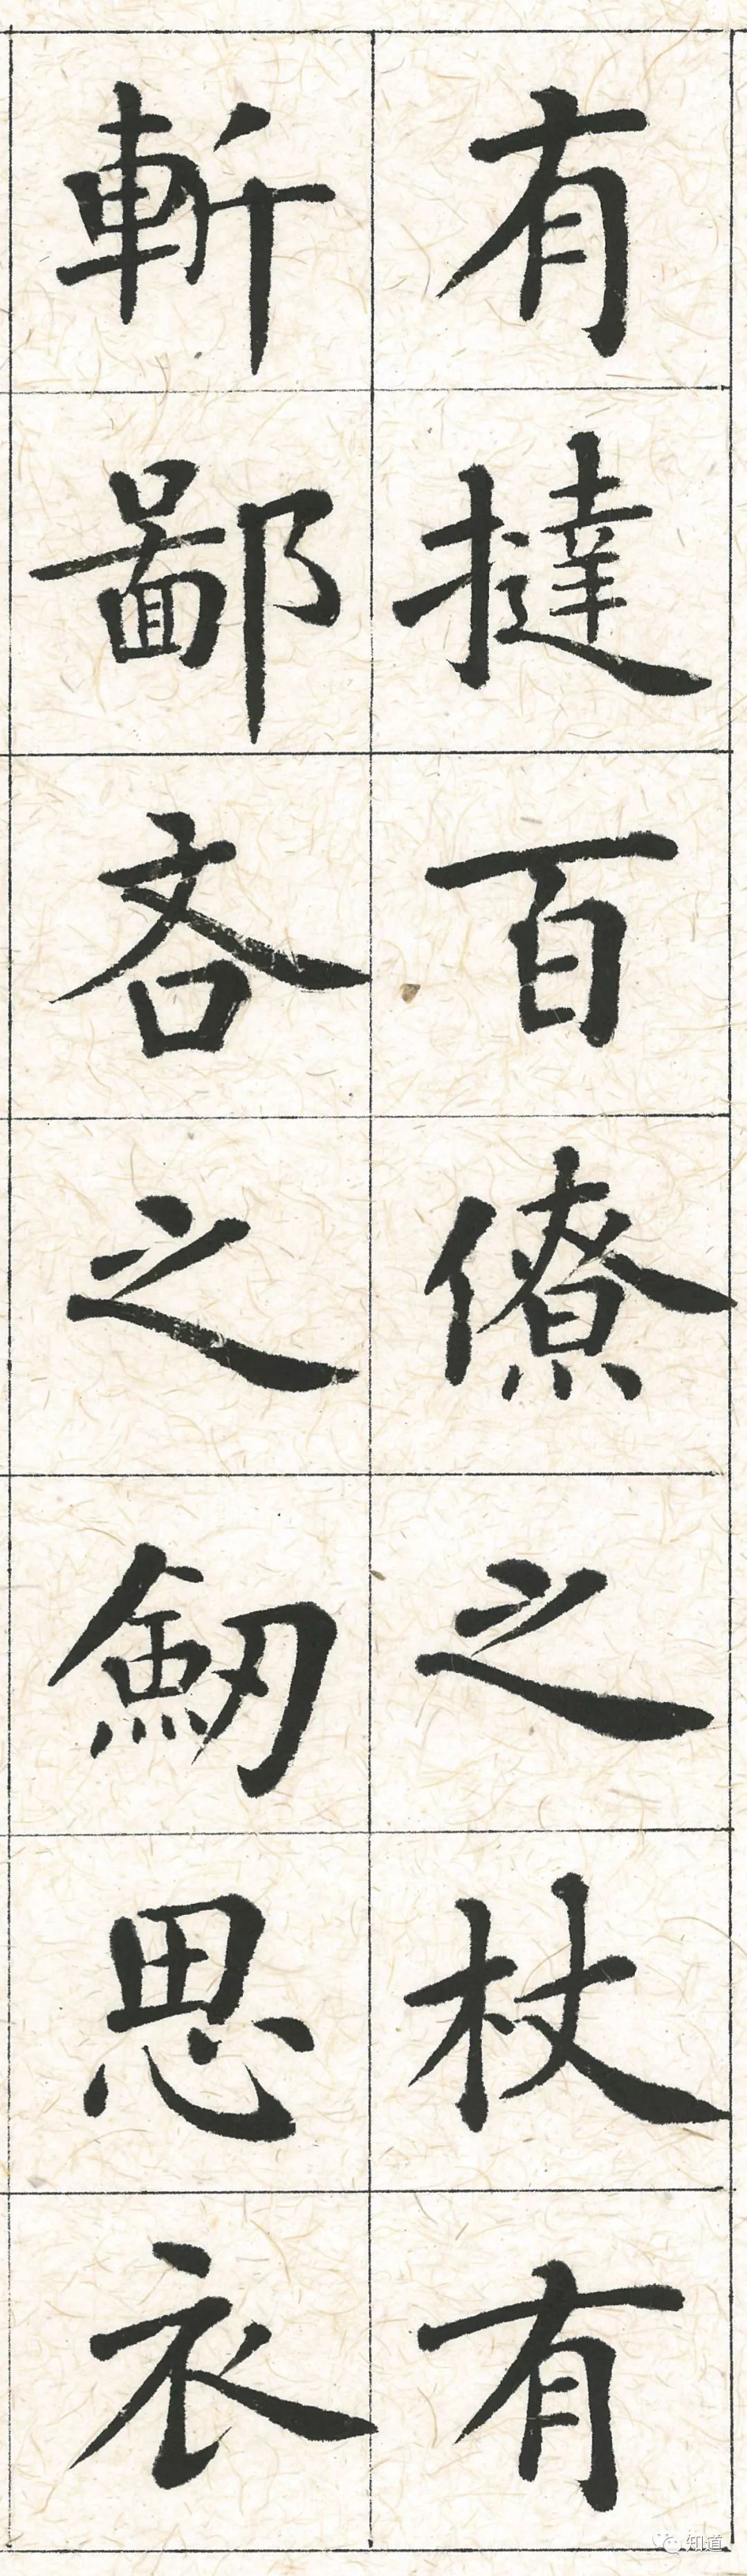 有撻百僚之杖有
斬鄙吝之劒思衣
知道